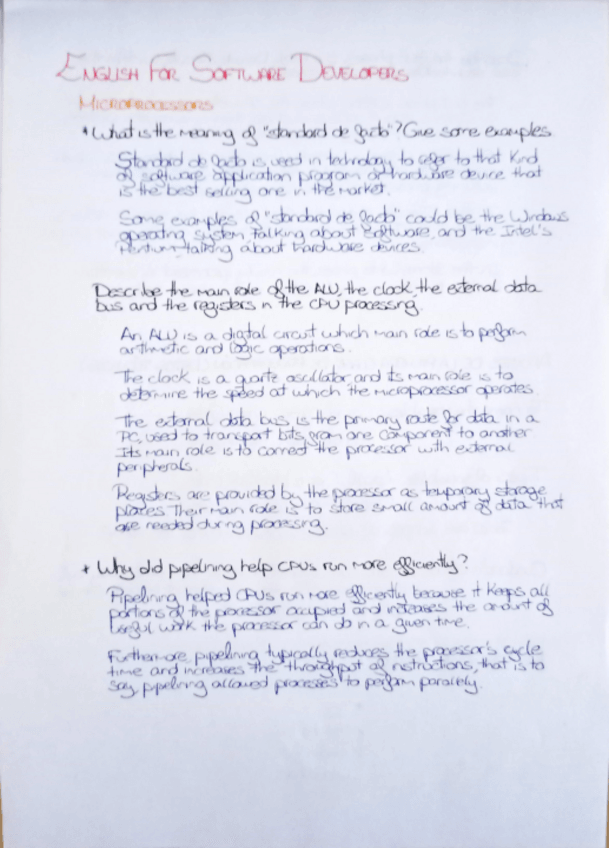 ENGLISH FOR SOFTWARE DEVELOPERS
MICROPROCESSORS
* What is the meaning of "standard de facto"? Give some examples.
Standard de facto is used in technology to refer to that kind
of software application program or hardware device that
is the best selling one in the market.
Some examples of "standard de facto" could be the Windows
operating system talking about software, and the Intel's
Pentium talking about hardware devices.
Describe the main role of the ALU, the clock, the external data
bus and the registers in the CPU processing.
An ALU is a digital circuit which main role is to perform
arithmetic and logic operations.
The clock is a quartz oscillator and its main role is to
determine the speed at which the microprocessor operates
The external data bus is the primary route for data in a
PC, used to transport bits from one component to another
Its main role is to connect the processor with external
peripherals.
Registers are provided by the processor as temporary storage
places. Their main role is to store small amount of data that
are needed during processing.
* Why did pipelining help CPUs run more efficiently?
Pipelining helped CPUs run more efficiently because it keeps all
portions of the processor occupied and increases the amount of
useful work the processor can do in a given time.
Furthermore, pipelining typically reduces the processor's cycle
time and increases the throughput of instructions, that is to
say, pipelining allowed processes to perform paralely.